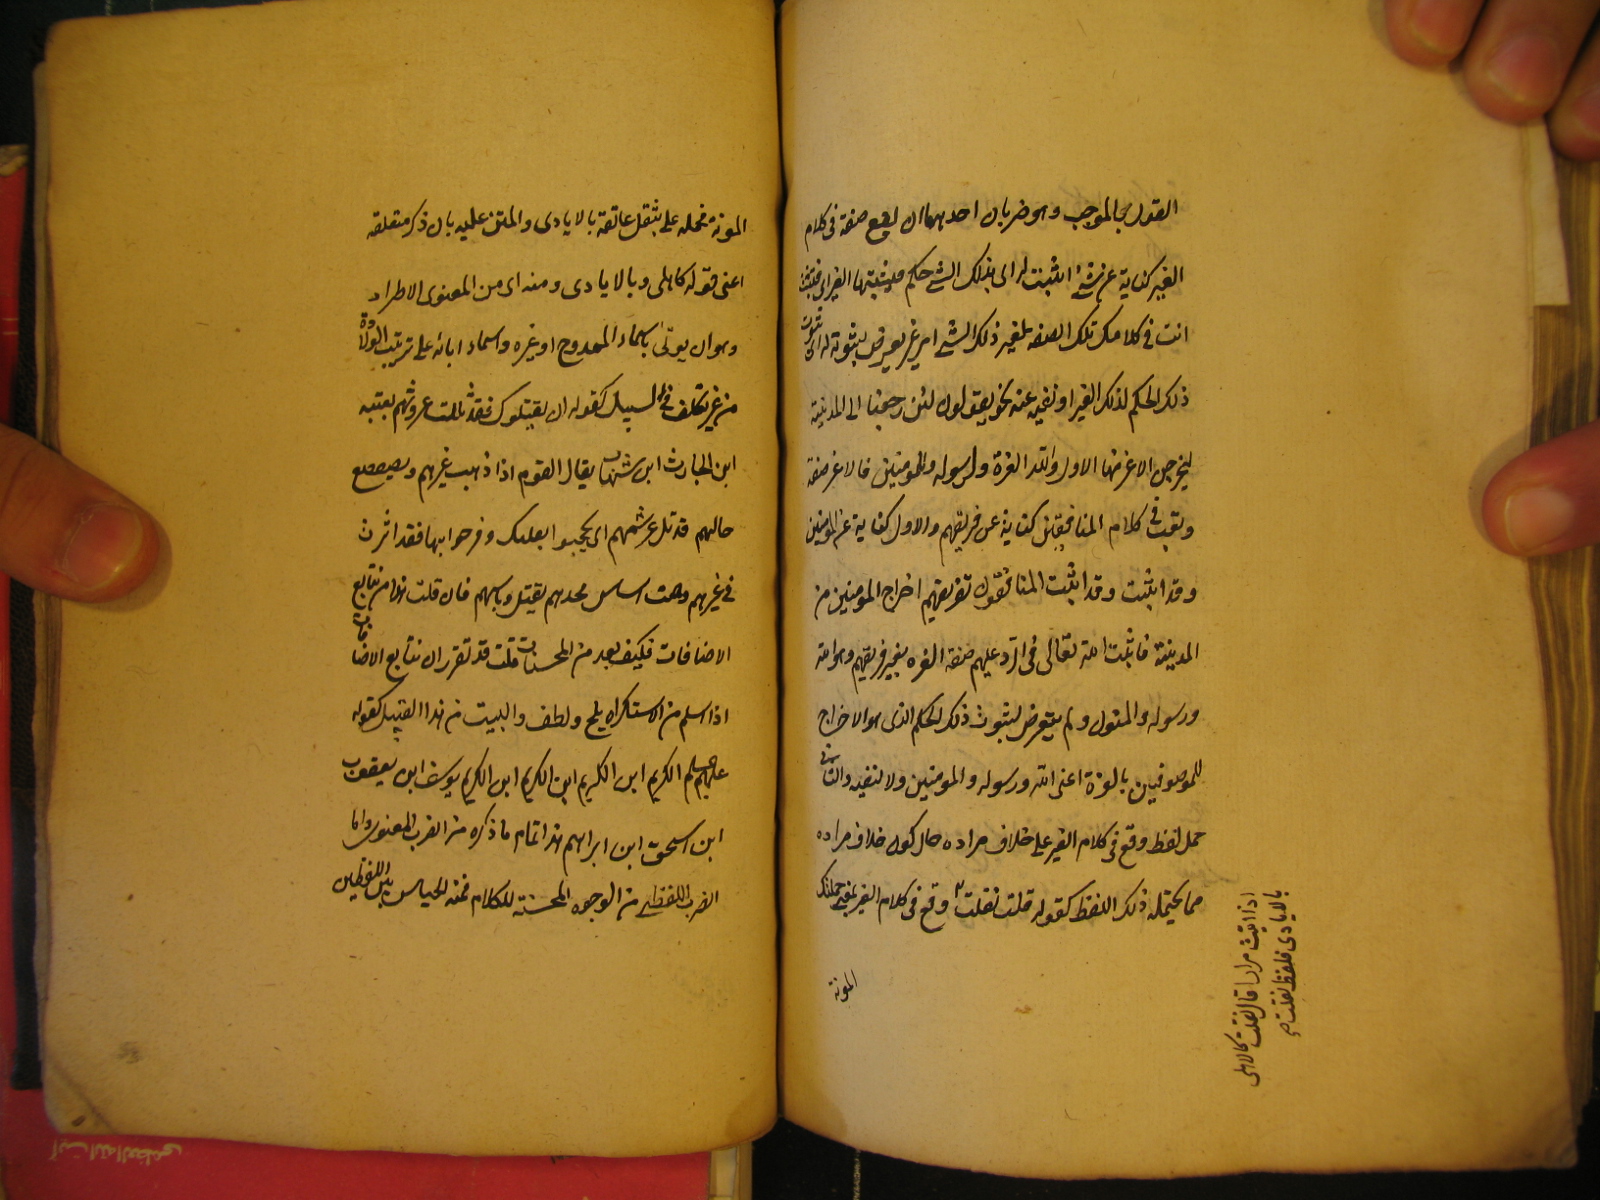 القول بالموجب وهو ضربان احدهما ان يقع صفة فى كلام
الغير كناية عن شئ اثبت له اى لذلك الشئ حكم فيثبتها لغيره اى فتثبت
انت فى كلامك تلك الصفة لغير ذلك الشئ من غير تعرض لثبوته له اى لثبوت
ذلك الحكم لذلك الغير او نفيه عنه نحو يقولون لئن رجعنا الى المدينة
ليخرجن الاعز منها الاذل ولله العزة ولرسوله وللمومنين فالاعز صفة
وقعت فى كلام المنافقين كناية عن فريقهم والاذل كناية عن المومنين
وقد اثبت وقد اثبت المنافقون لفريقهم اخراج المومنين من
المدينة فاثبت الله تعالى فى الرد عليهم صفة العزة لغير فريقهم وهو الله
ورسوله والمومنون ولم يتعرض لثبوت ذلك الحكم الذى هو الاخراج
للموصوفين بالعزة اعنى الله ورسوله والمومنين ولا لنفيه والثانى
حمل لفظ وقع فى كلام الغير على خلاف مراده حال كون خلاف مراده
مما يحتمله ذلك اللفظ كقوله قلت ثقلت وقع فى كلام الغير بمعنى حملتك
المونة
اذا اتيت مرارا قال ثقلت كاهلى
بالايادى فلفظ ثقلت صح
المونة فحمله على تثقيل عاتقه بالايادى والمنن عليه بان ذكر متعلقه
اعنى قوله كاهلى وبالايادى ومنه اى من المعنوى الاطراد
وهو ان يوتى باسماء الممدوح او غيره واسماء ابائه على ترتيب الولادة
من غير تكلف فى السبك كقوله ان يقتلوك فقد ثللت عروشهم بعتيبة
ابن الحارث ابن شهاب يقال للقوم اذا ذهب عزهم وتضعضع
حالهم قد ثل عرشهم اى تبجحوا بقتلك وفرحوا بها فقد اثرت
فى عزهم وهدمت اساس مجدهم بقتل رئيسهم فان قلت هذا من تتابع
الاضافات فكيف يعد من المحسنات قلت قد تقرر ان تتابع الاضافات
اذا سلم من الاستكراه ملح ولطف والبيت من هذا القبيل كقوله
عليه السلم الكريم ابن الكريم ابن الكريم ابن الكريم يوسف ابن يعقوب
ابن اسحق ابن ابراهيم هذا تمام ما ذكره من الضرب المعنوى واما
الضرب اللفظى من الوجوه المحسنة للكلام فمنه الجناس بين اللفظين
آيت الله العظمى